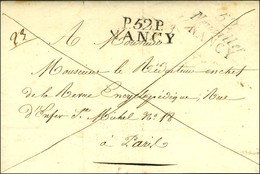 P.52.P.
NANCY
A Monsieur
Monsieur le Rédacteur en chef
de la Revue Encyclopédique, Rue
d'Enfer St Michel No 18
à Paris